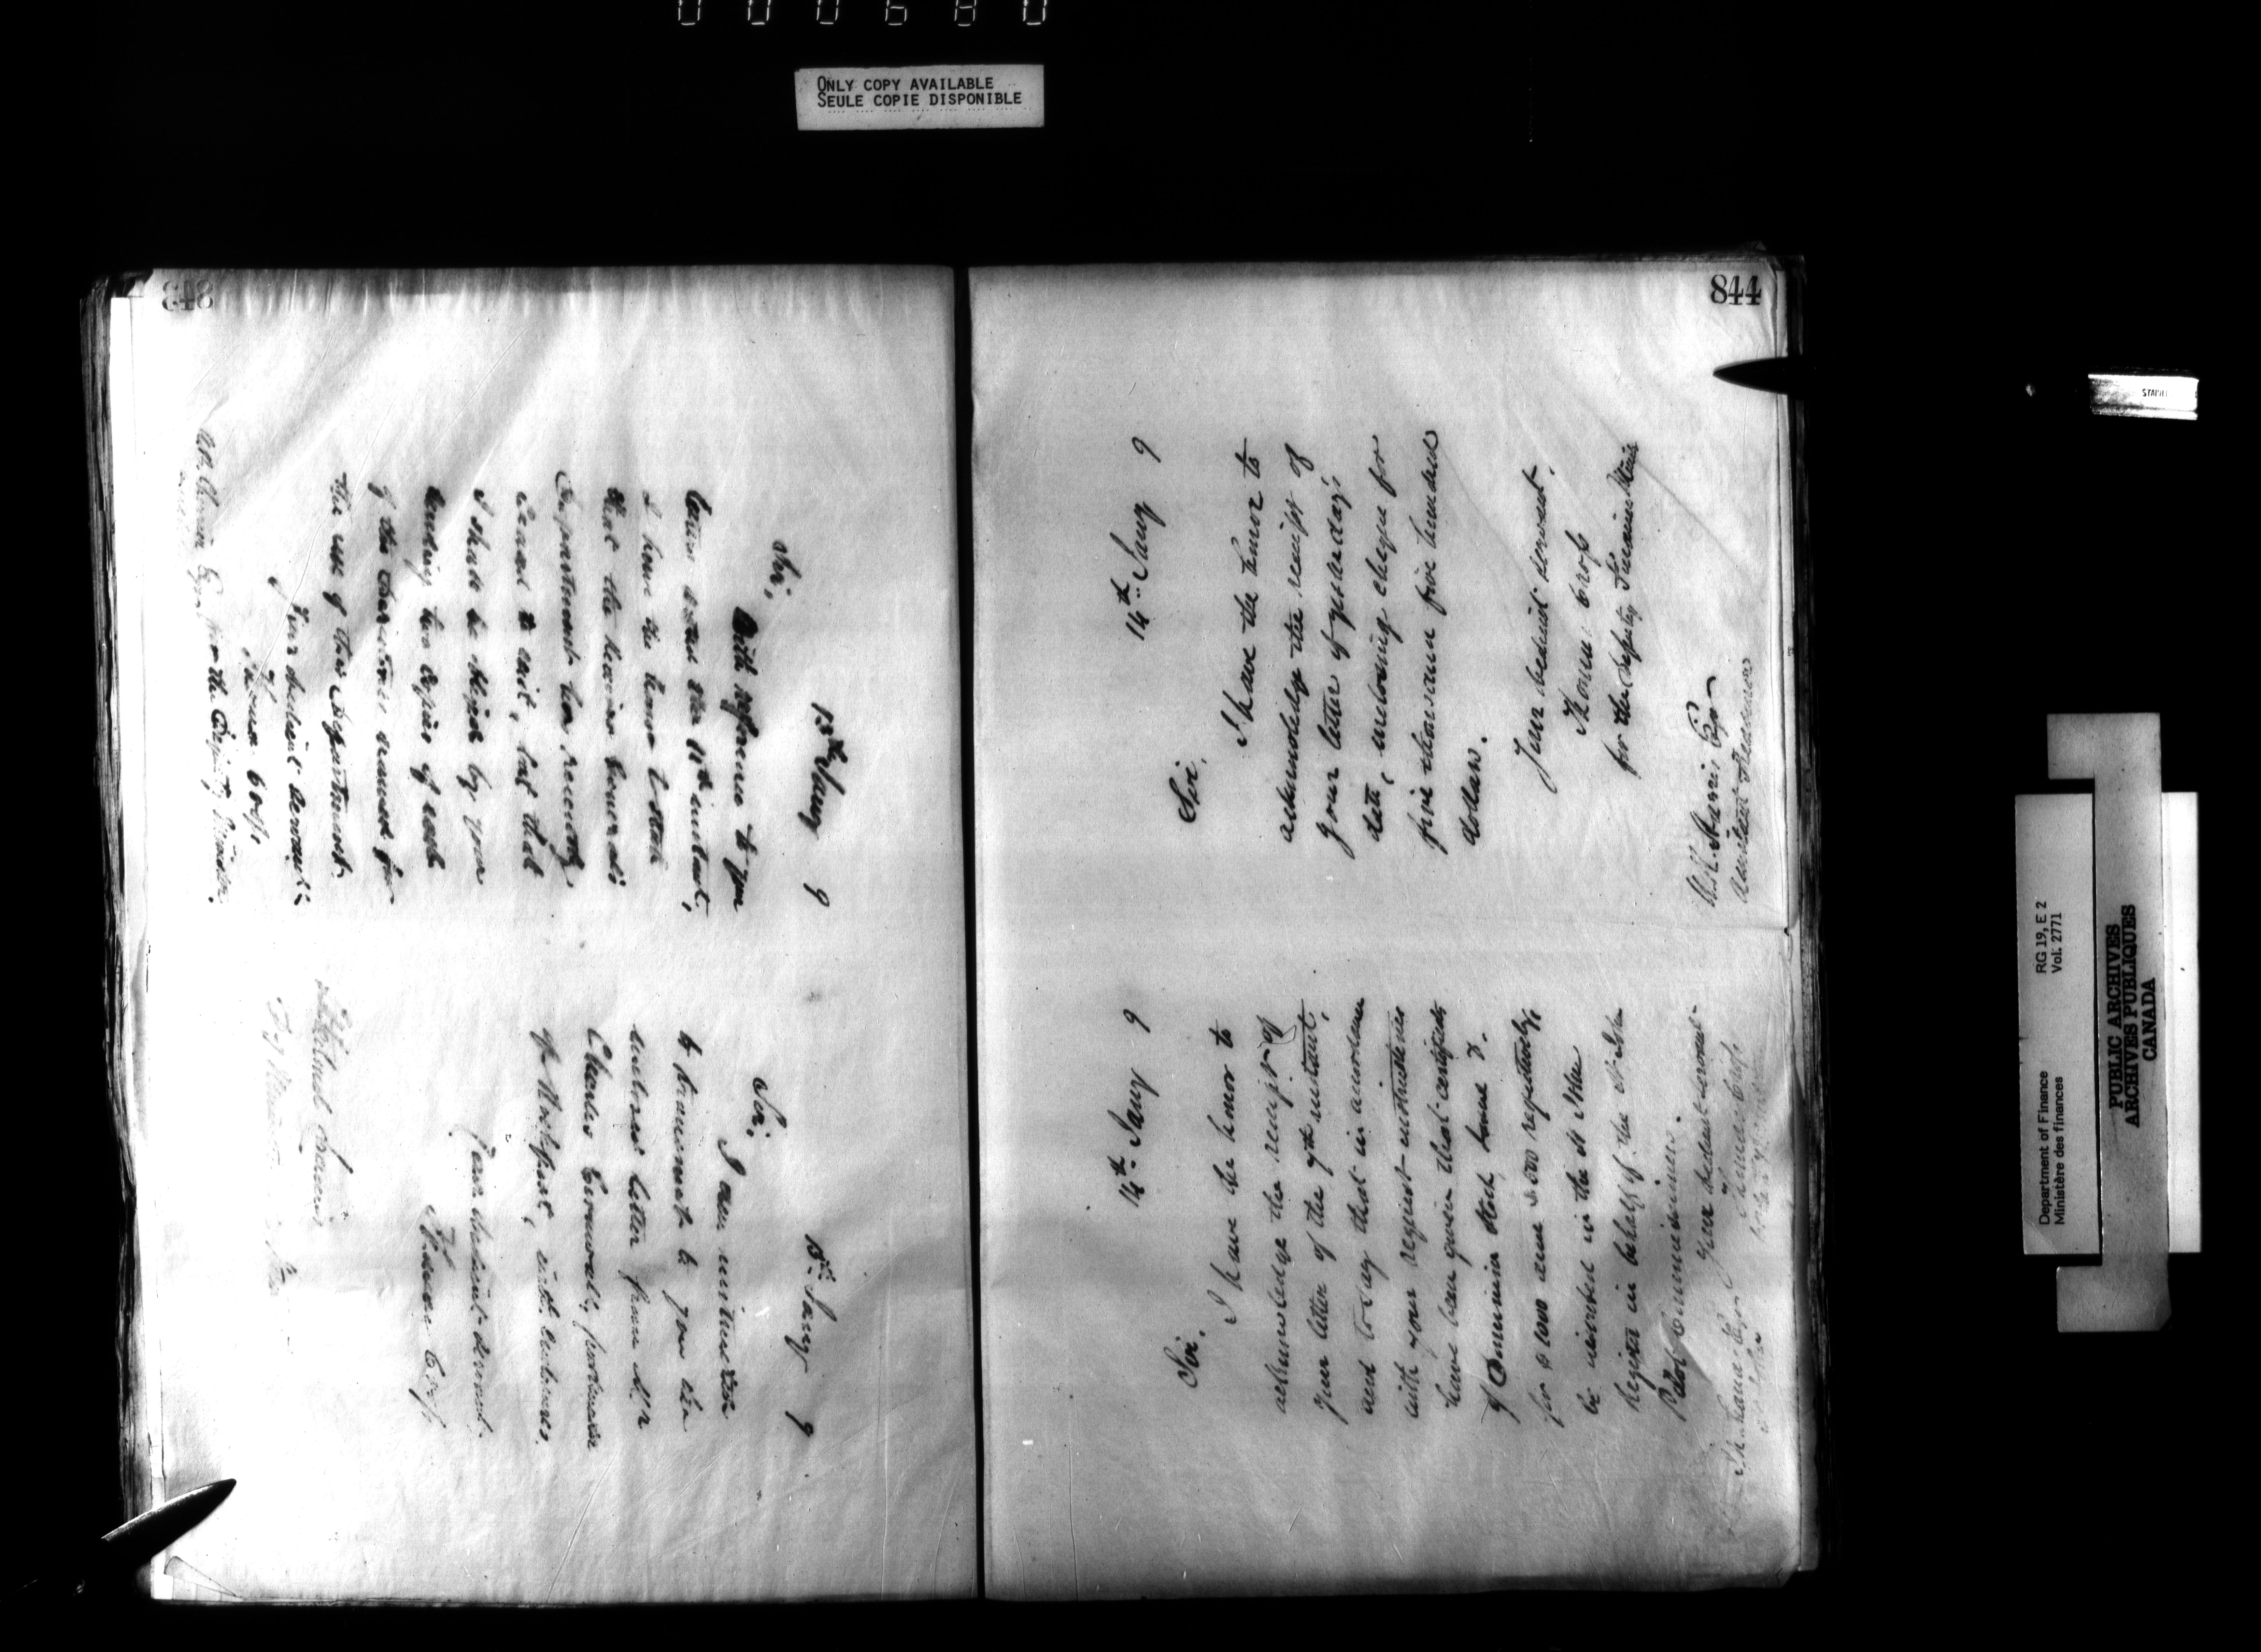 000680
ONLY COPY AVAILABLE
SEULE COPIE DISPONIBLE
843
13th Jany 9
Sir,
With reference to your
letter the 11th instant,
I have the honor to state
that the Receiver General's
Department has recently
ceased to exist, but that
I shall be obliged by your
sending two copies of each
of the for
the use of this Department.
Your obedient servant
Thomas Cross
Esq. for the Deputy Minister.
13th Jany 9
Sir,
I am instructed
to transmit to you the
enclosed letter from Mr
Charles
of with enclosures.
Your obedient servant
Thomas Cross
844
14th Jany 9
Sir,
I have the honor to
acknowledge the receipt of
your letter of yesterday's
date, enclosing cheque for
five thousand five hundred
dollars.
Your obedient servant.
Thomas Cross
for the Deputy Finance Minis
Esqr
14th Jany 9
Sir,
I have the honor to
acknowledge the receipt of
your letter of the 9th instant,
and to say that in accordance
with your request instructions
have been given that certificates
of Dominion Stock
for $1000 and 3.500 respectively,
be inscribed in the St John
Register in behalf of the St John
Pilot Commissioners.
Your obedient servant
Esqr
STAPLE
Department of Finance RG 19, E 2
Ministère des finances Vol. 2771
PUBLIC ARCHIVES
ARCHIVES PUBLIQUES
CANADA